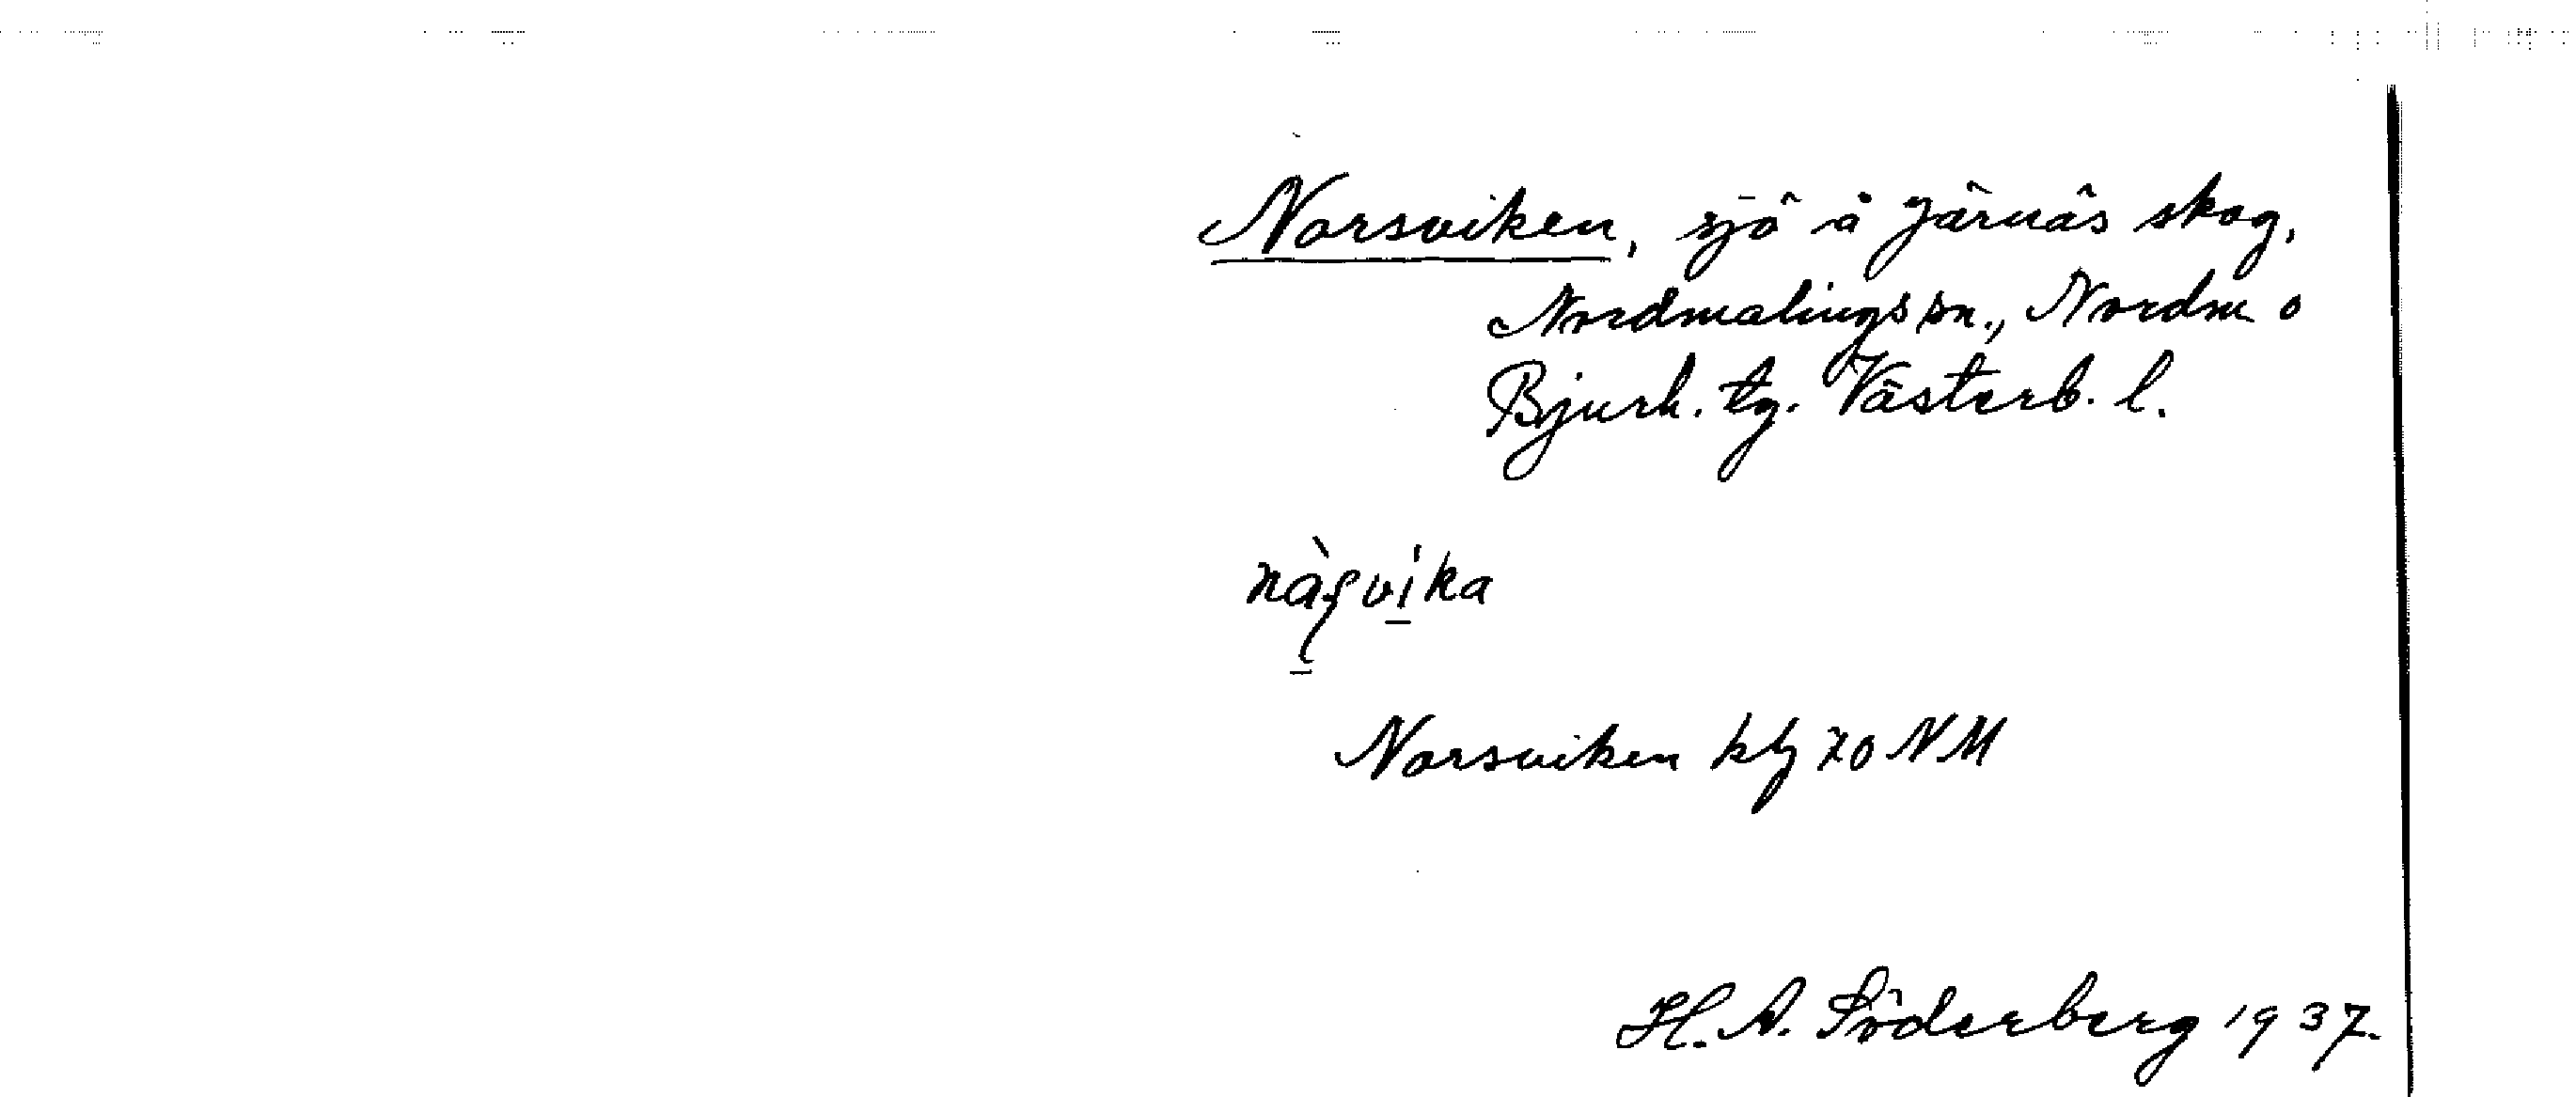 Norsviken, sjö å Järnäs skog,
Nordmalings sn., Nordm o
Bjurh. tg. Västerb. l.
nàʂvíka
Norsviken kbl 70 NM
H. A. Söderberg 1937.